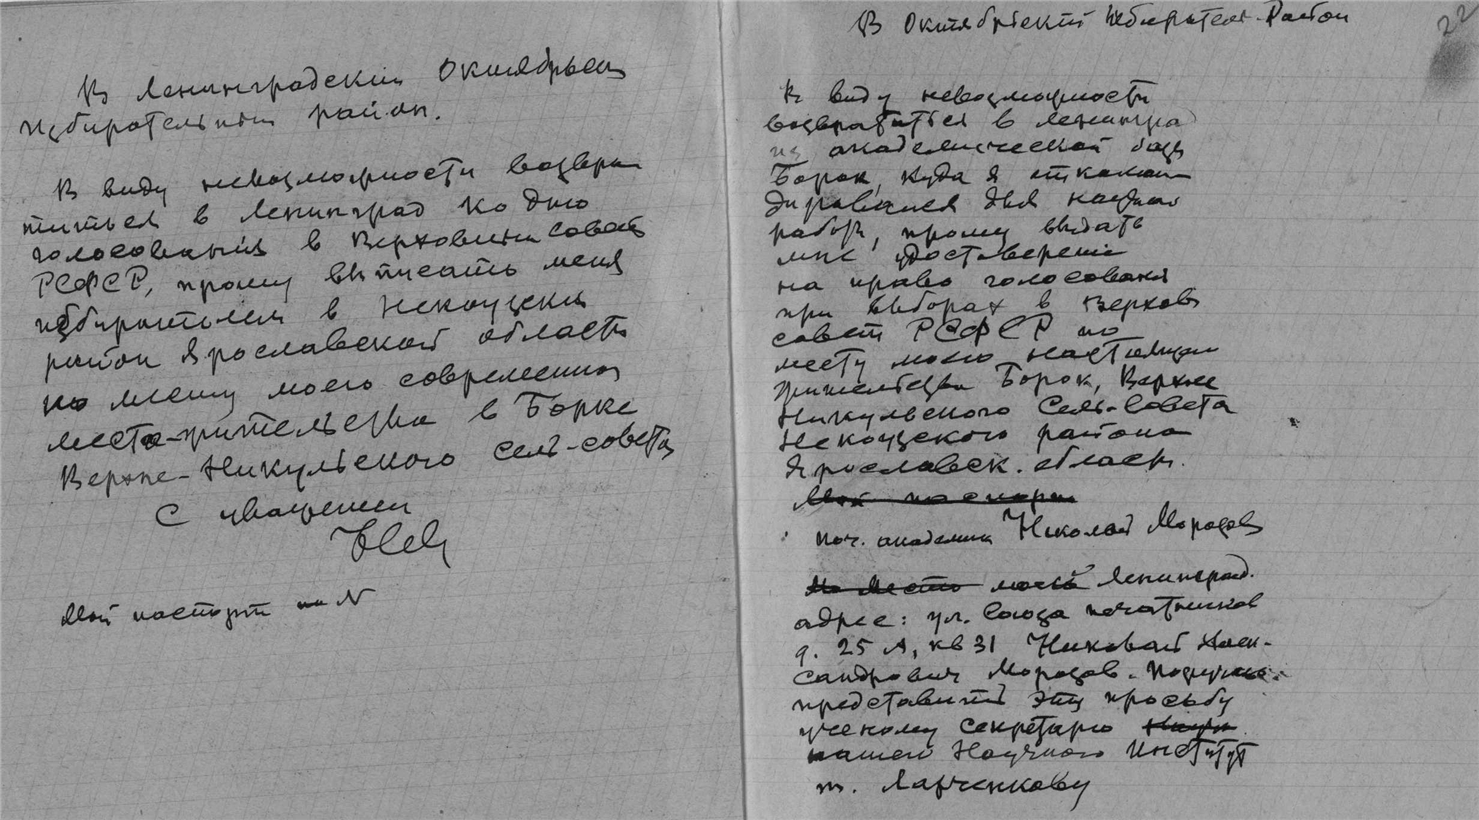 В Ленинградский Октябрьск
избирательный район.
В виду невозможности возвра
титься в Ленинград ко дню
голосования в Верховный совет
РСФСР, прошу выписать меня
избирателем в Некоузский
район Ярославской области
по месту моего современного
места-жительства в Борке
Верхне-Никульского сель-совета
С уважением
Мой паспорт №
22
В Октябрьский Избирател. Район
В виду невозможности
возвратиться в Ленинград
из академической базы
Борок, куда я откоман
дировался для научной
работы, прошу выдать
мне удостоверение
на право голосования
при выборах в Верховн
совет РСФСР по
месту моего настоящего
жительства Борок, Верхне
Никульского Сель-Совета
Некоузского района
Ярославск. област.
Мой паспорт
Поч. академик Николай Морозов
На Место моей Ленинград.
адрес: ул. Союза печатников
д. 25 А, кв 31 Николай Алек-
сандрович Морозов. Поручаю
представить эту просьбу
ученому секретарю Научн
нашего Научного Институт
т. Ларченкову